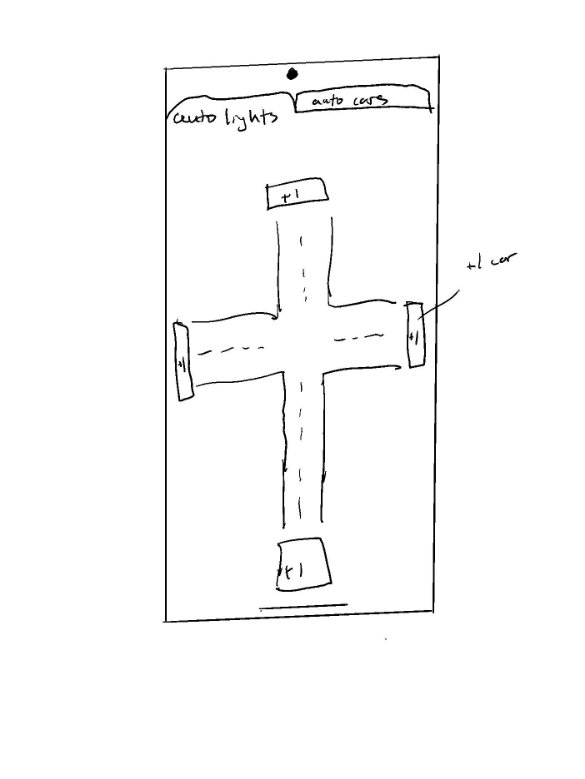 auto lights
auto cars
+1
+1 car
+1
+1
+1